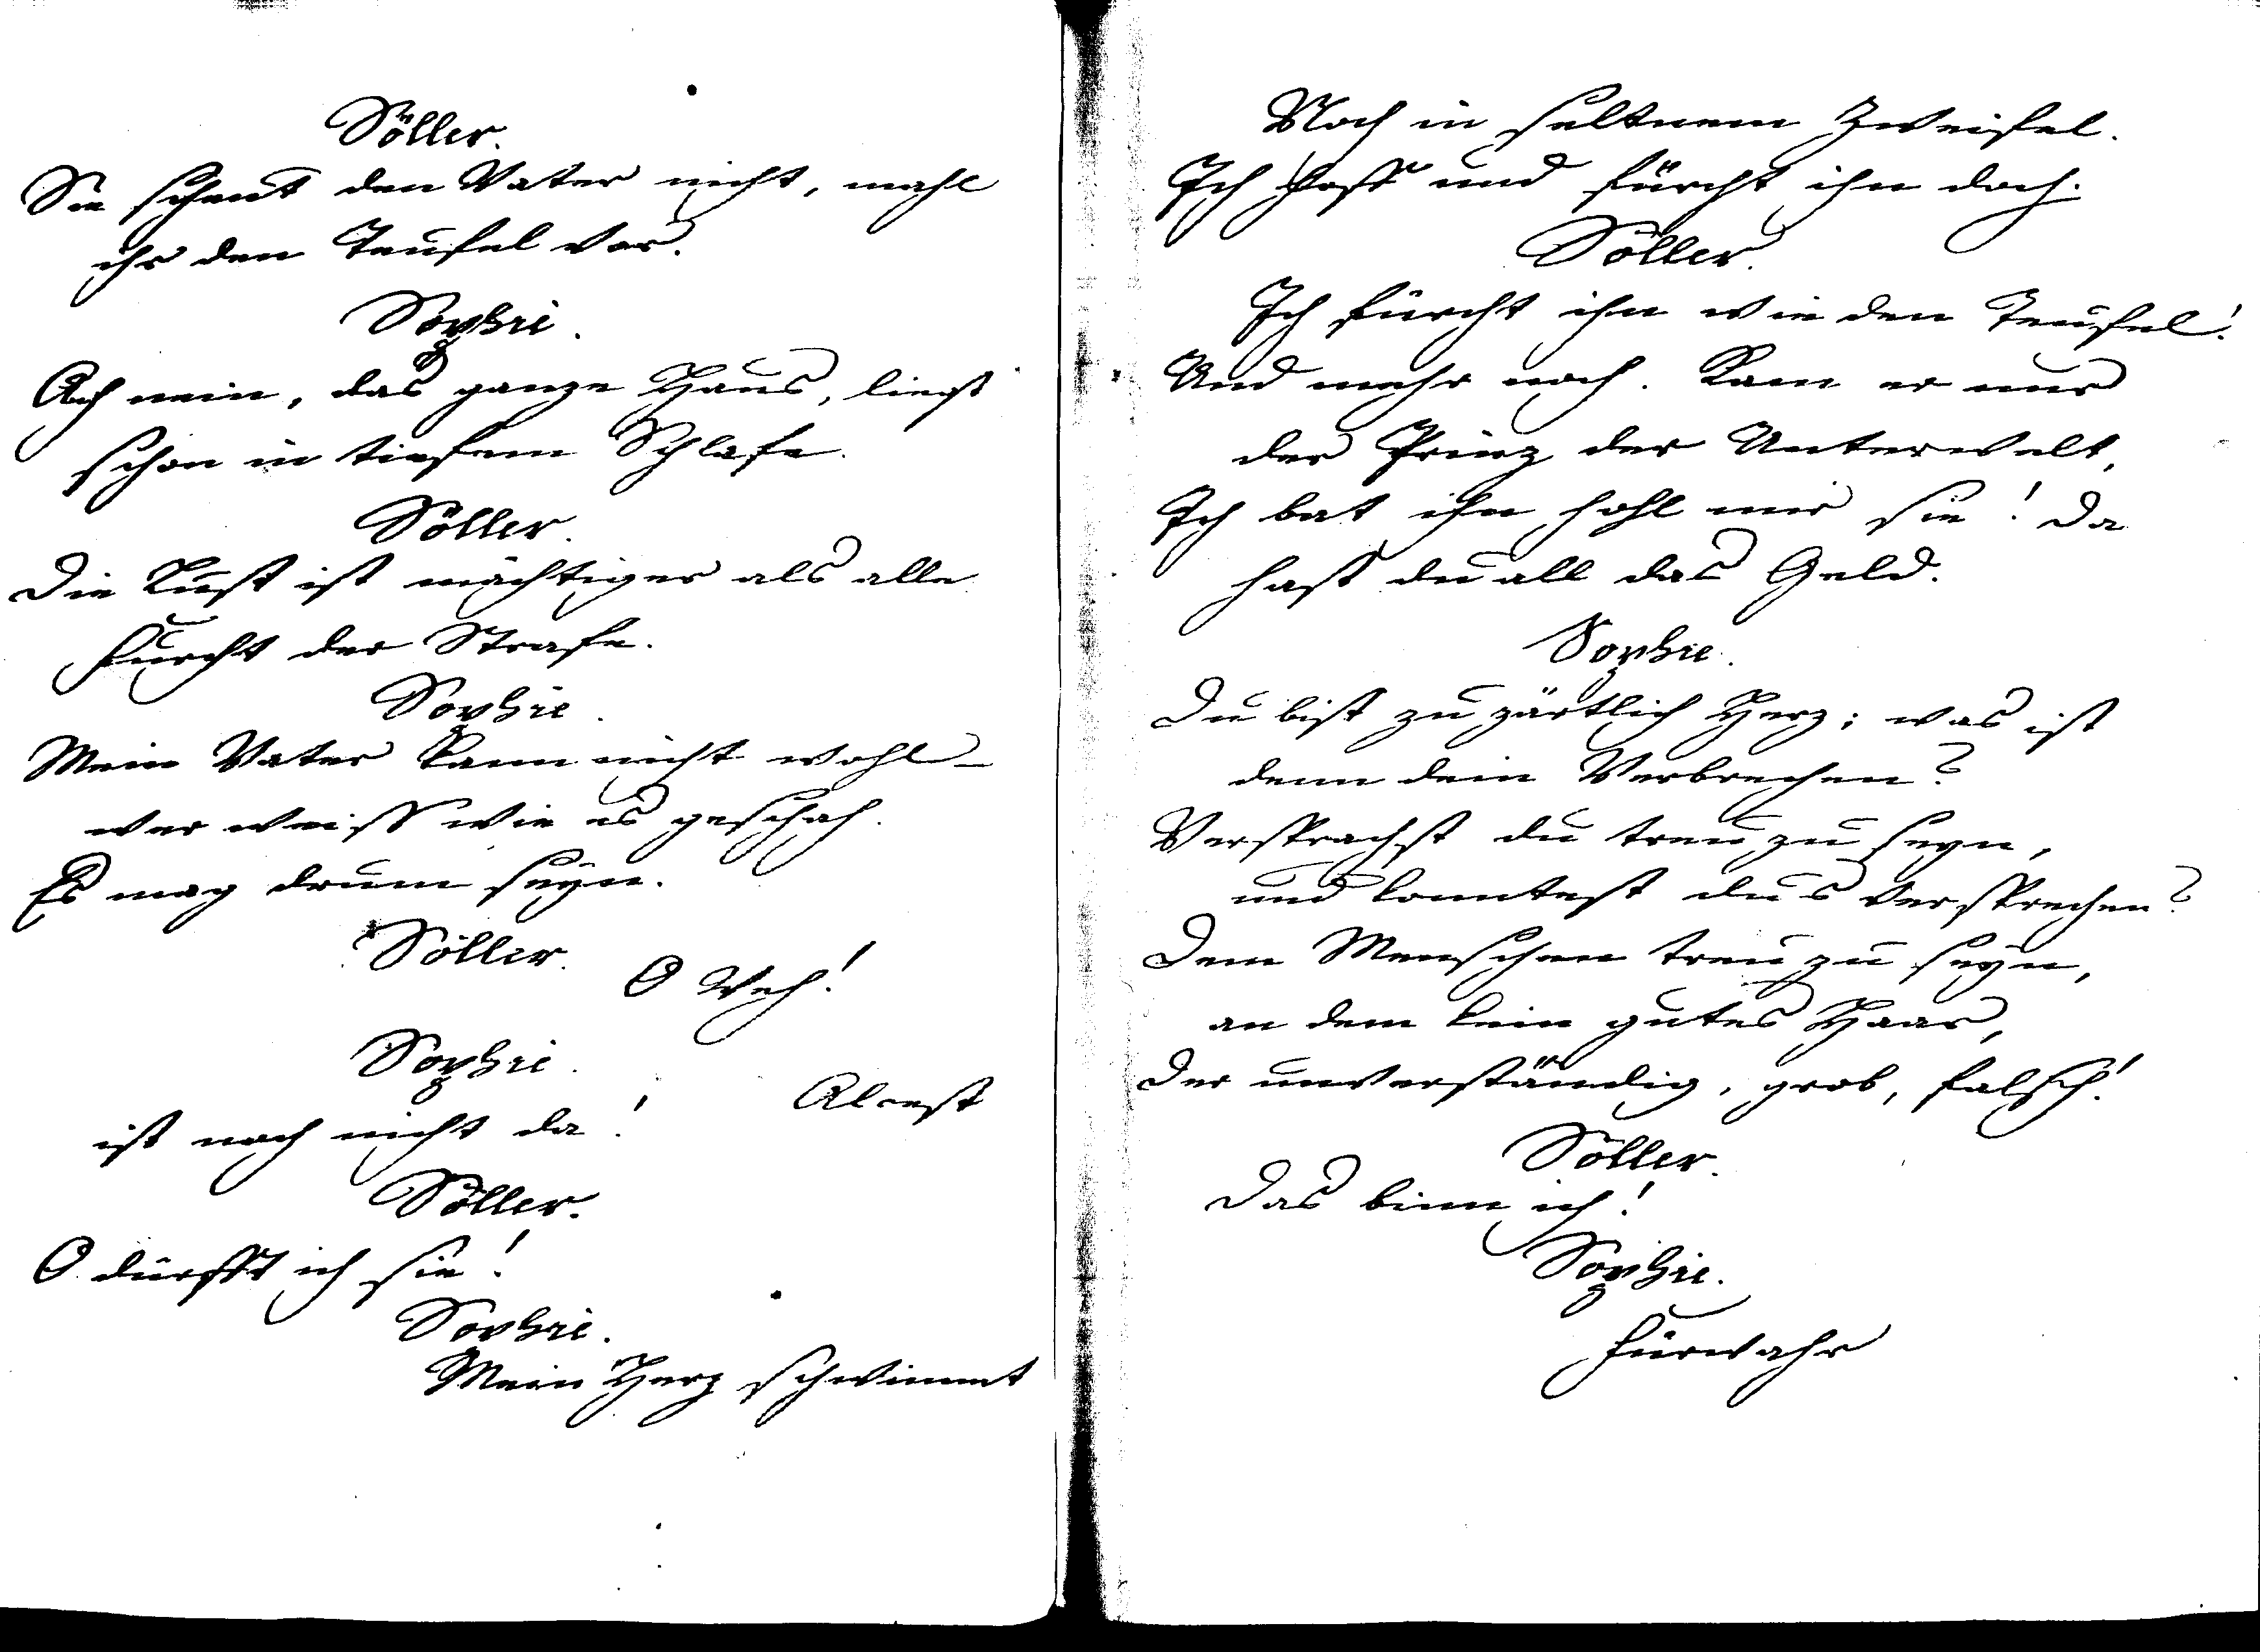 Söller.
Sie scheut den Vater nicht, mahl
ihr den Teufel vor.
Sophie.
Ach nein, das ganze Haus, liegt
schon in tiefem Schlafe.
Söller.
Die Lust ist mächtiger als alle
Furcht der Strafe.
Sophie.
Mein Vater kann nicht wohl –
wer weiss wie es geschah.
Es mag drum seyn.
Söller.
O Weh!
Sophie.
Alcest
ist noch nicht da!
Söller.
O dürfft ich sie!
Sophie.
Mein Herz schwimmt
Noch in seltnem Zweifel.
Ich hoff und fürcht ihn doch.
Söller.
Ich fürcht ihn wie den Teufel!
Und mehr noch. Kam er nur
der Prinz der Unterwelt,
Ich bät ihn hohl mir sie! da
hast du all das Geld.
Sophie.
Du bist zu zärtlich Herz; was ist
denn dein Verbrechen?
Versprachst du treu zu seyn,
und konntest dus versprechen?
Dem Menschen treu zu seyn,
an dem kein gutes Haar,
Der unverständig, grob, falsch!
Söller.
Das binn ich!
Sophie.
Fürwahr